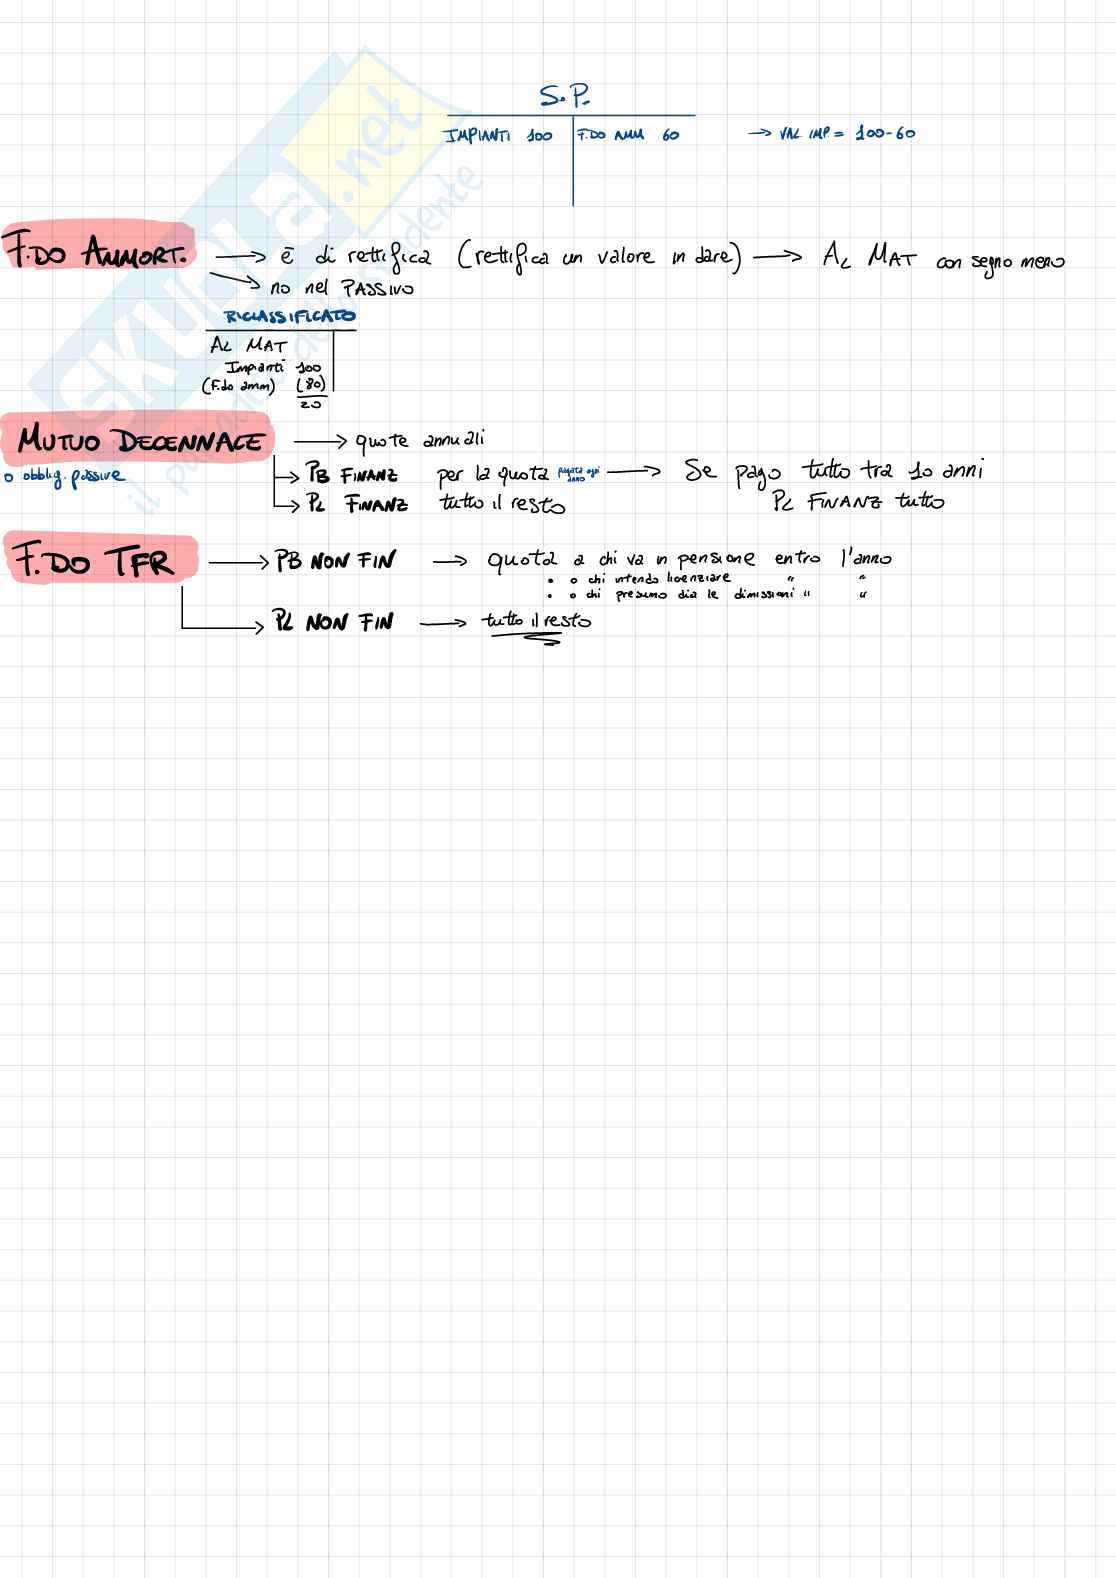 S.P.
IMPIANTI 100 F.DO AMM 60 → VAL IMP. = 100-60
F.DO AMMORT. → è di rettifica (rettifica un valore in dare) → AL MAT con segno meno
→ no nel PASSIVO
RICLASSIFICATO
AL MAT
Impianti 100
(F.do amm) (80)
20
MUTUO DECENNALE → quote annuali
o obblig. passive → PB FINANZ per la quota pagata ogni anno → Se pago tutto tra 10 anni
→ PL FINANZ tutto il resto PL FINANZ tutto
F.DO TFR → PB NON FIN → quota a chi va in pensione entro l'anno
• o chi intendo licenziare " "
• o chi presumo dia le dimissioni " "
→ PL NON FIN → tutto il resto
SKUOLA.net
il paradiso dello studente